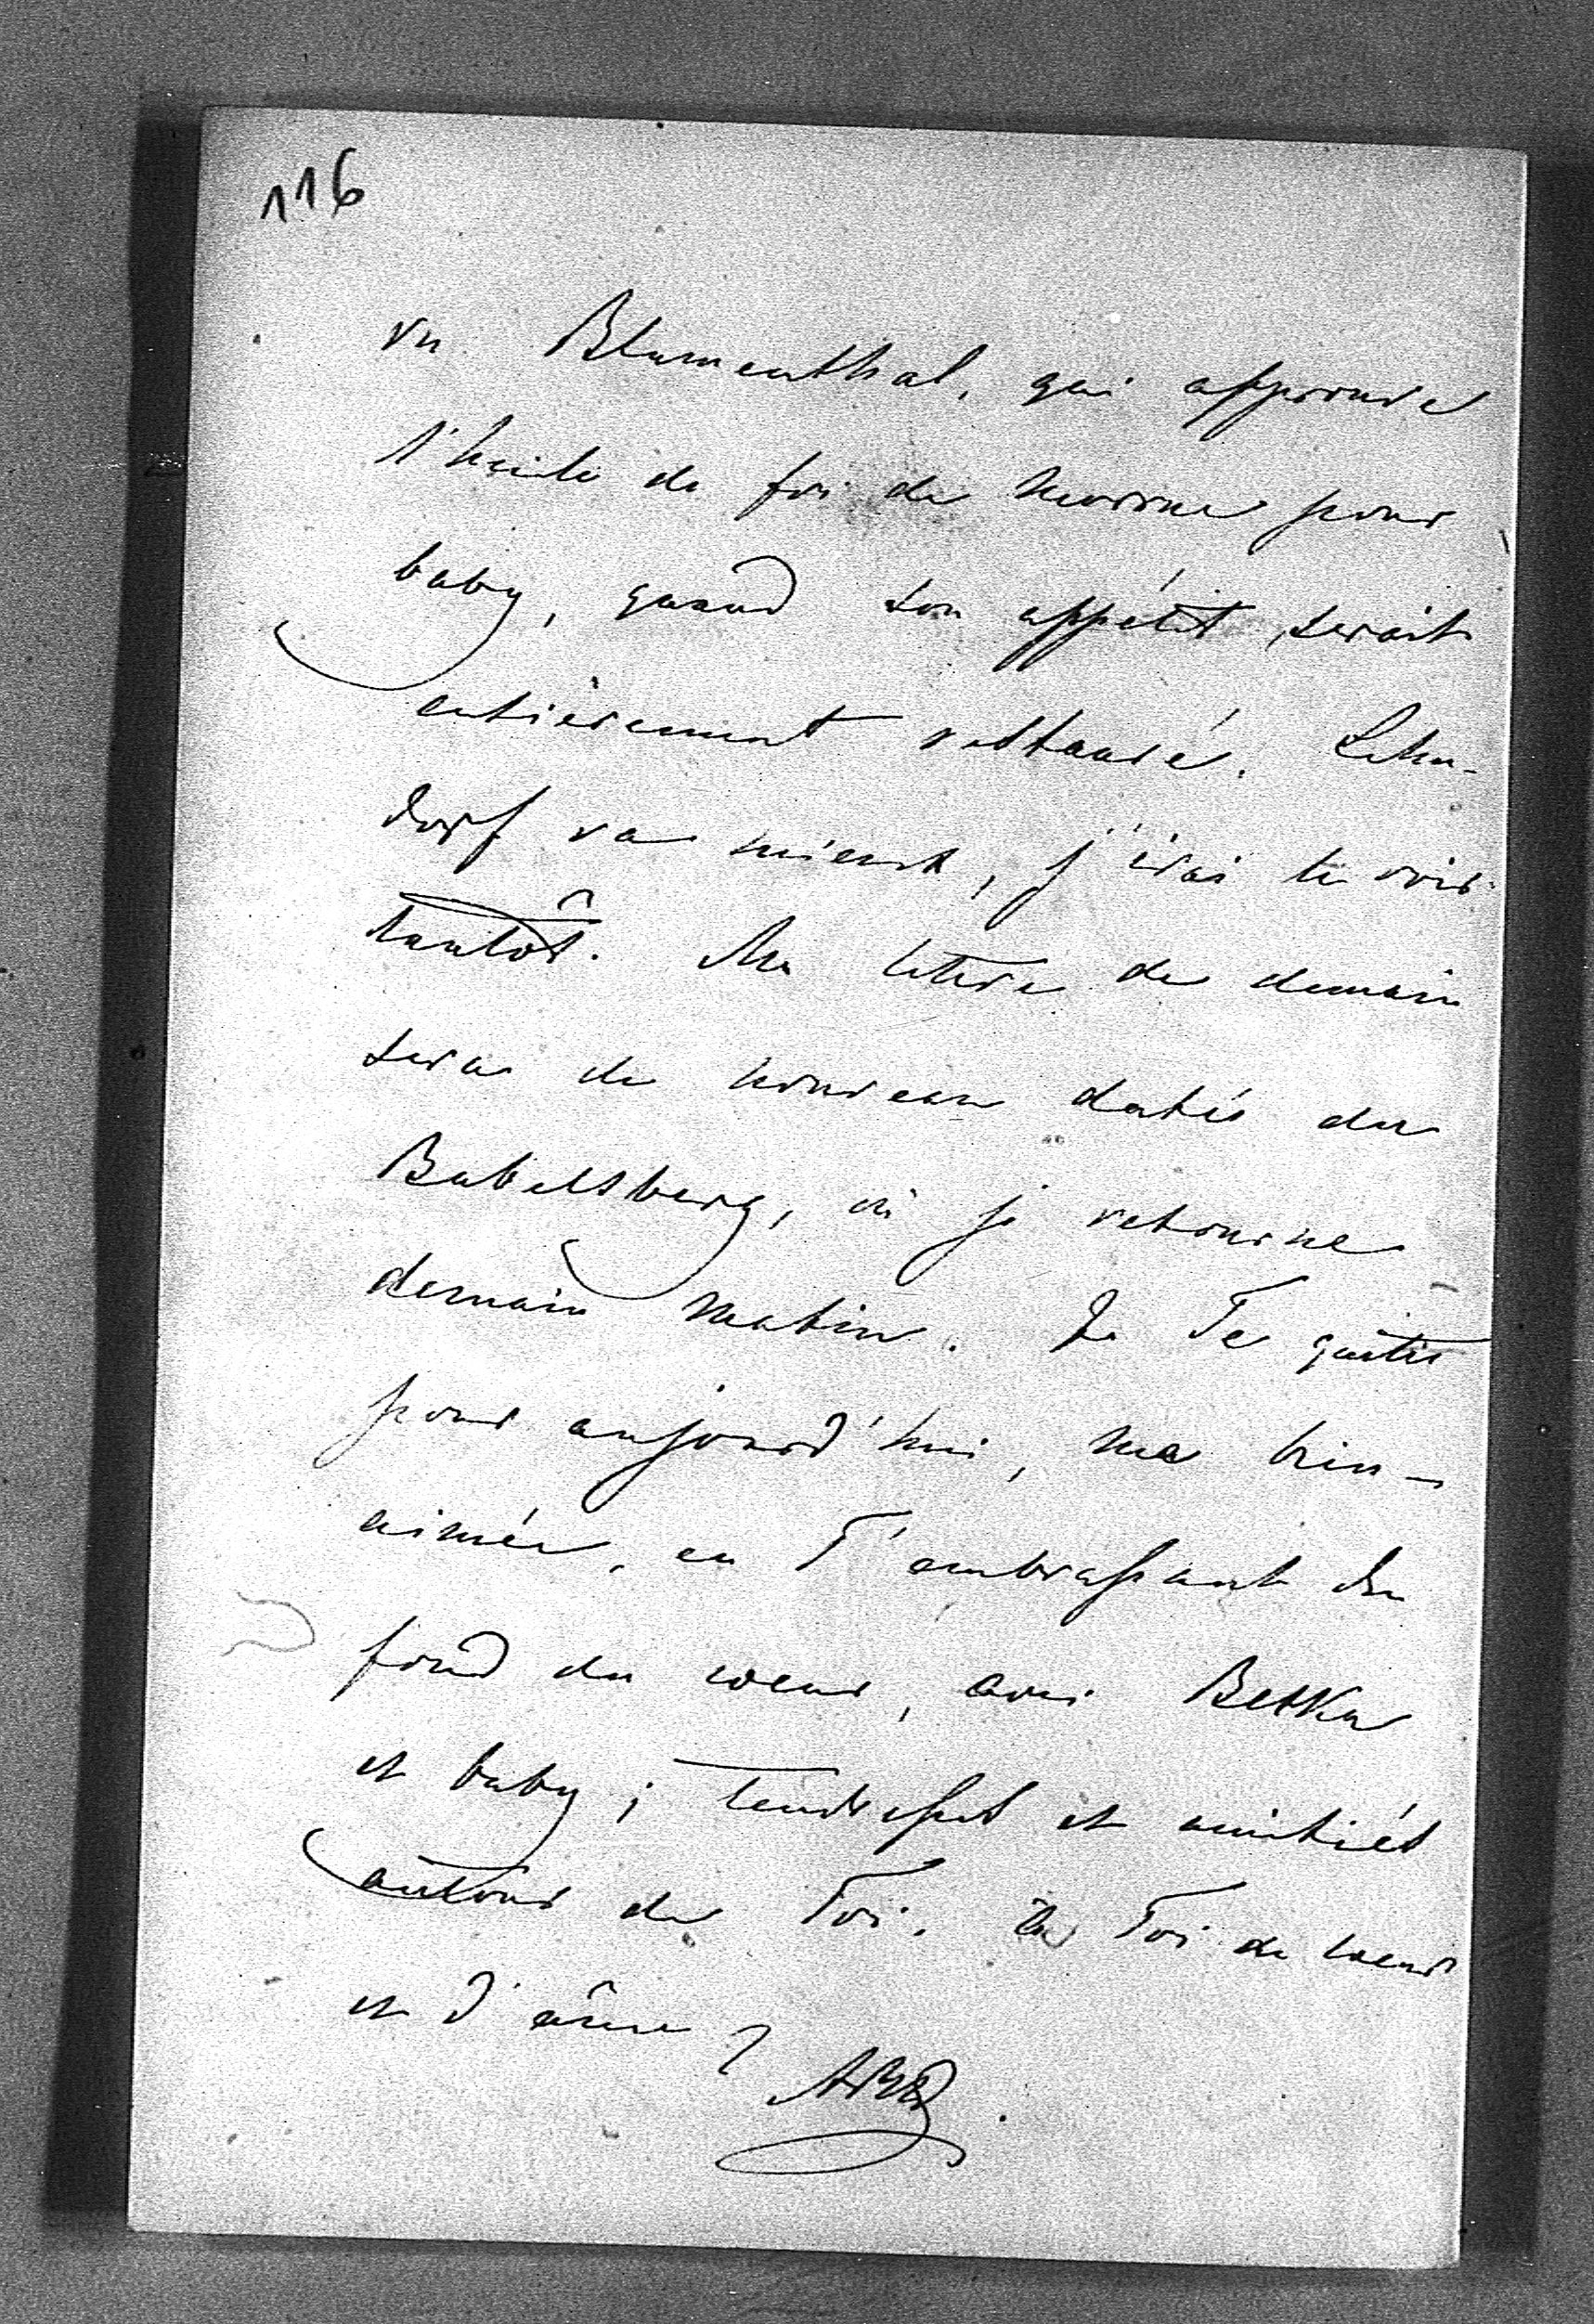 116
vu Blumenthal, qui approuve
l'huile de foi de morue pour
baby, quand son appétit serait
entièrement restauré. Lehn-
dorf va mieux, j'irai le voir
tantôt. Ma lettre de demain
sera de nouveau datée du
Babelsberg, où je retourne
demain matin. Je Te quitte
pour aujourd'hui, ma bien-
aimée, en T'embrassant du
fond du coeur, avec Betka
et baby; tendresses et amitiés
autour de Toi. à Toi de coeur
et d'âme